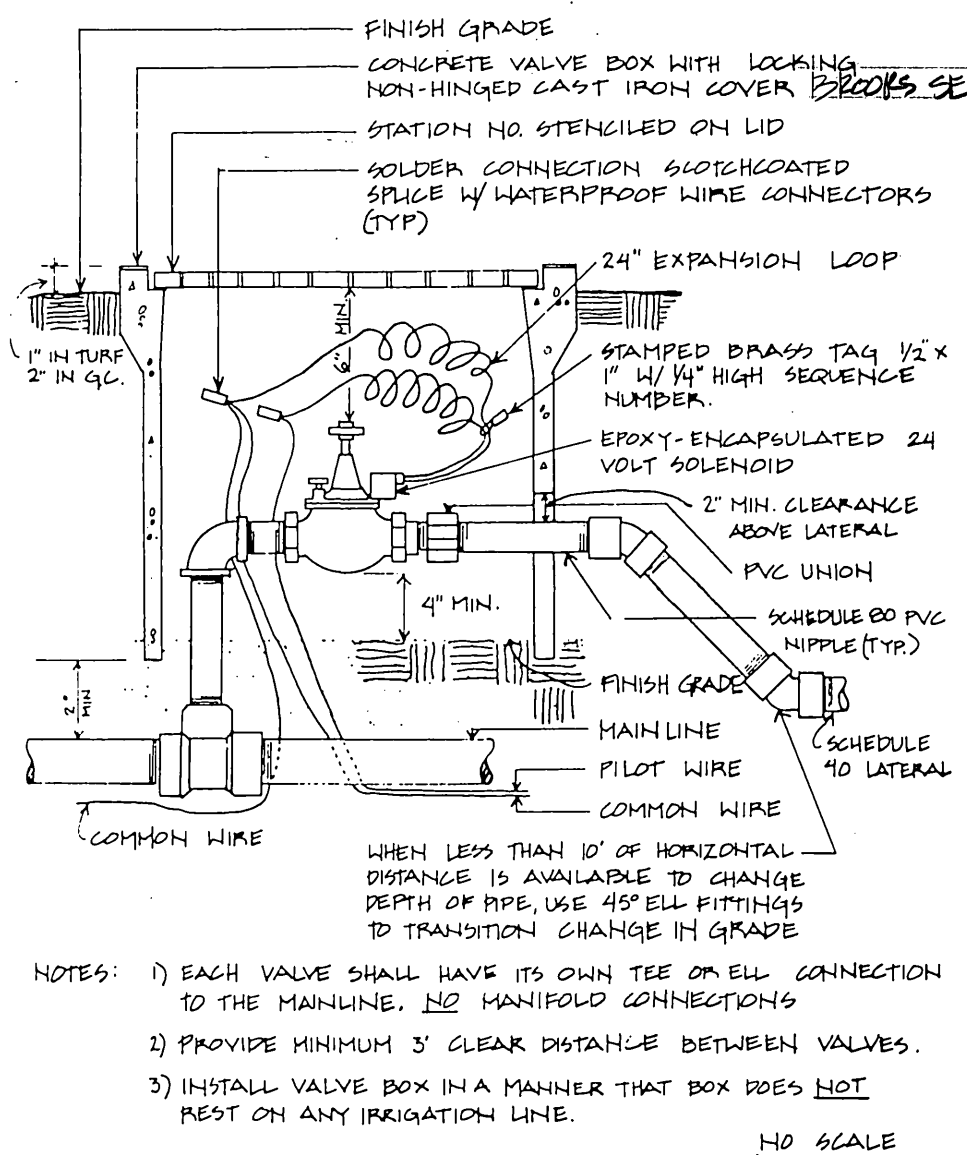 FINISH GRADE
CONCRETE VALVE BOX WITH LOCKING
NON-HINGED CAST IRON COVER BROOKS SE
STATION NO. STENCILED ON LID
SOLDER CONNECTION SCOTCHCOATED
SPLICE W/ WATERPROOF WIRE CONNECTORS
(TYP)
24" EXPANSION LOOP
6" MIN
1" IN TURF
2" IN GC.
STAMPED BRASS TAG 1/2" X
1" W/ 1/4" HIGH SEQUENCE
NUMBER.
EPOXY-ENCAPSULATED 24
VOLT SOLENOID
2" MIN. CLEARANCE
ABOVE LATERAL
PVC UNION
4" MIN.
SCHEDULE 80 PVC
NIPPLE (TYP.)
FINISH GRADE
2" MIN
MAINLINE
SCHEDULE
40 LATERAL
PILOT WIRE
COMMON WIRE
COMMON WIRE
WHEN LESS THAN 10' OF HORIZONTAL
DISTANCE IS AVAILABLE TO CHANGE
DEPTH OF PIPE, USE 45° ELL FITTINGS
TO TRANSITION CHANGE IN GRADE
NOTES: 1) EACH VALVE SHALL HAVE ITS OWN TEE OR ELL CONNECTION
TO THE MAINLINE. NO MANIFOLD CONNECTIONS
2) PROVIDE MINIMUM 3' CLEAR DISTANCE BETWEEN VALVES.
3) INSTALL VALVE BOX IN A MANNER THAT BOX DOES NOT
REST ON ANY IRRIGATION LINE.
NO SCALE